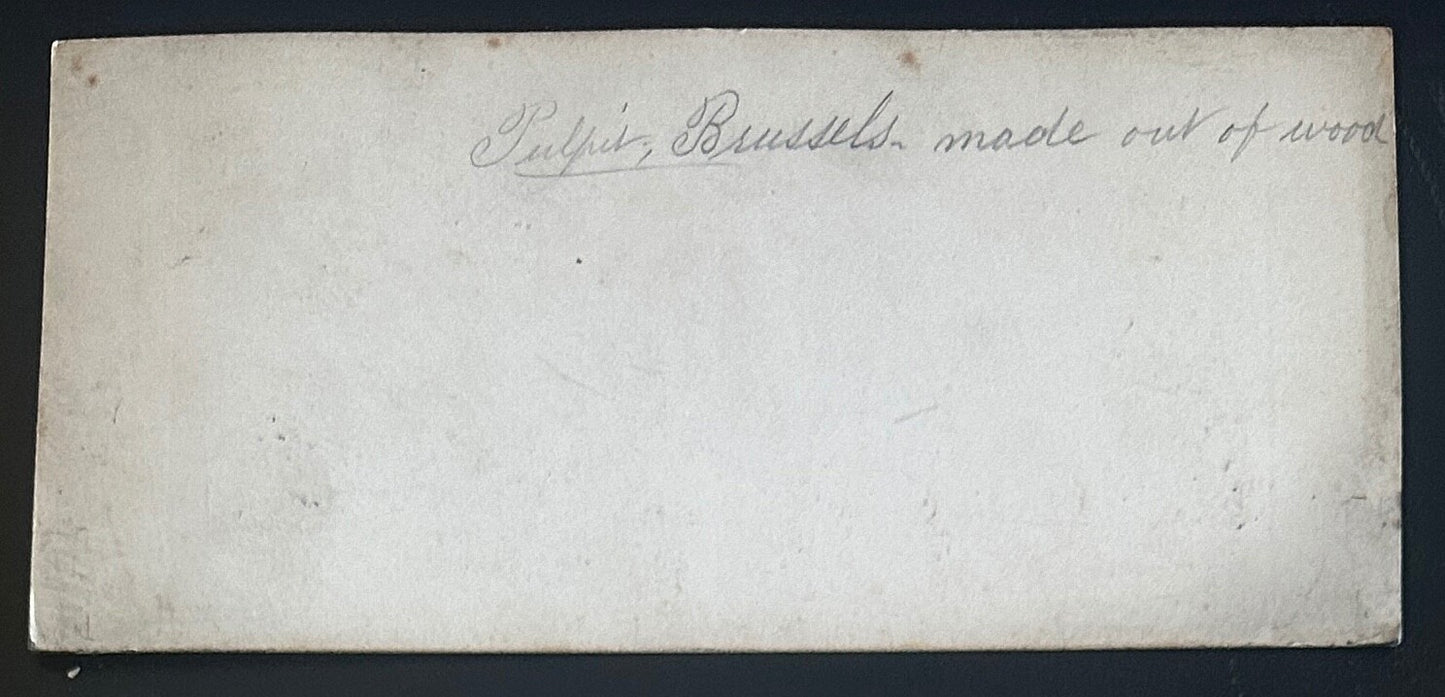 Pulpit, Brussels - made out of wood